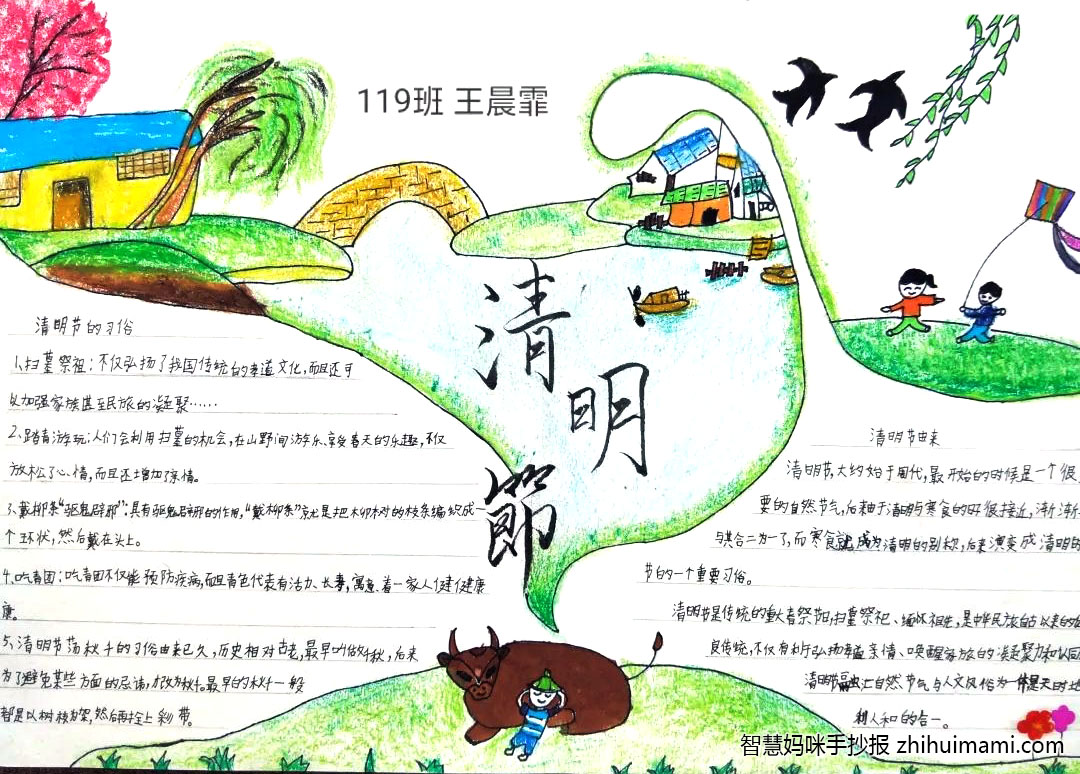 119班 王晨霏
清
明
節
清明节的习俗
1、扫墓祭祖：不仅弘扬了我国传统的孝道文化，而且还可
以加强家族甚至民族的凝聚……
2、踏青游玩：人们会利用扫墓的机会，在山野间游乐、享受春天的乐趣，不仅
放松了心情，而且还增加了亲情。
3、戴柳条“驱鬼辟邪”：具有驱鬼辟邪的作用，“戴柳条”就是把柳树的枝条编织成一
个环状，然后戴在头上。
4、吃青团：吃青团不仅能预防疾病，而且青色代表有活力、长寿，寓意着一家人健健康
康。
5、清明节荡秋千的习俗由来已久，历史相对古老，最早叫做千秋，后来
为了避免某些方面的忌讳，改为秋千。最早的秋千一般
都是以树枝为架，然后再拴上彩带。
清明节由来
清明节，大约始于周代，最开始的时候是一个很
要的自然节气，后来由于清明与寒食的日很接近，渐渐
与其合二为一了，而寒食就成为清明的别称，后来演变成清明的
节的一个重要习俗。
清明节是传统的重大春祭节日，扫墓祭祀、缅怀祖先，是中华民族自古以来的
良传统，不仅有利于弘扬孝道亲情、唤醒家族的凝聚力和认同
清明节融汇自然节气与人文风俗为一体是天时地
利人和的合一。
智慧妈咪手抄报 zhihuimami.com